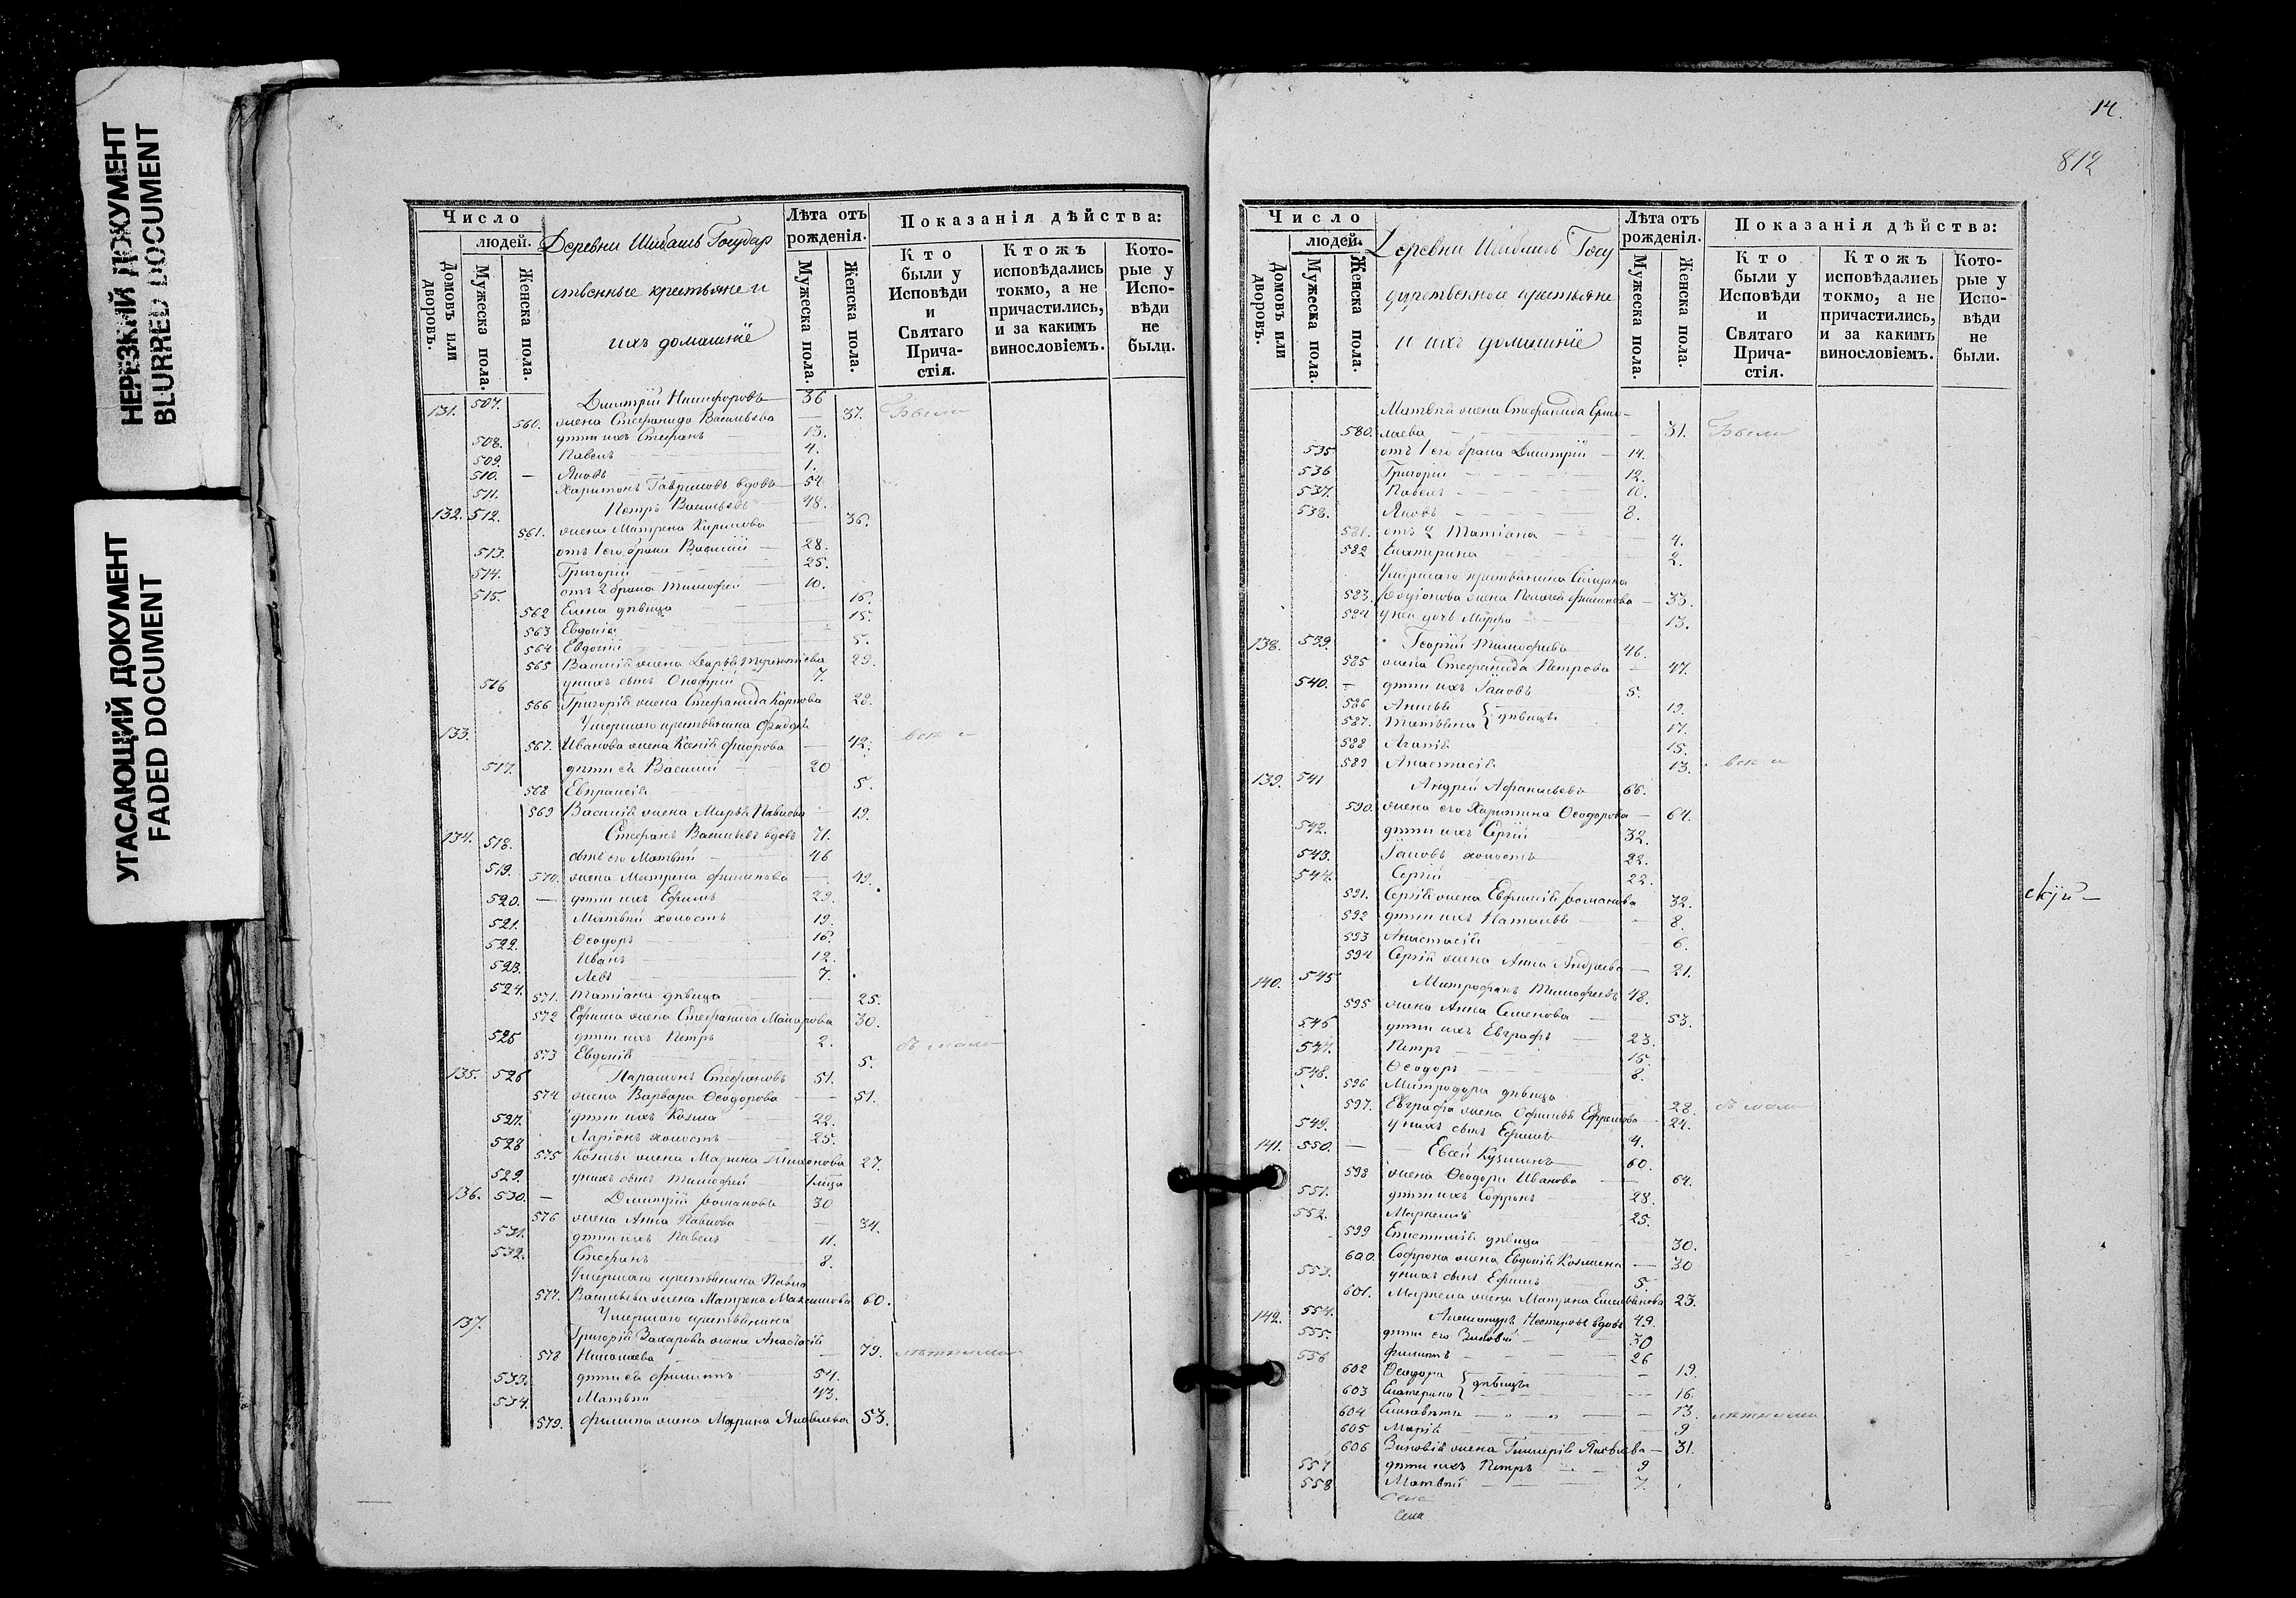 НЕРЕЗКИЙ ДОКУМЕНТ
BLURRED DOCUMENT
УГАСАЮЩИЙ ДОКУМЕНТ
FADED DOCUMENT
Число
людей.
Домовъ или дворовъ.
Мужеска пола.
Женска пола.
Деревни Шибашъ Государ
ственные крестьяне и
ихъ домашніе
Лѣта отъ рожденія.
Мужеска пола.
Женска пола.
Показанія дѣйства:
Кто были у Исповѣди и Святаго Прича-стія.
Ктожъ исповѣдались токмо, а не причастились, и за какимъ винословіемъ.
Кото-рые у Испо-вѣди не были.
131. 507. Дмитрій Никифоровъ 36
560. жена Стефанида Васильева — 37. Были
508. дѣти ихъ Стефанъ 13.
509. Павелъ 4.
510. — Яковъ 1.
511. Харитонъ Гавриловъ вдовъ 54
132. 512. Петръ Васильевъ 48.
561. жена Матрена Кирилова — 36.
513. отъ 1 его брака Василій — 28.
514. Григорій 25.
515. отъ 2 брака Тимофей 10.
562 Елена дѣвица 16.
563 Евдокія 15.
564 Евдокія 5.
565 Василія жена Дарья 29.
516 у нихъ сынъ Онофрій 7.
566 Григорія жена Стефанида Карпова 28.
133. Умершаго крестьянина
567. Иванова жена Ксенія — 42.
517. дѣти ея Василій 20
568 Евпраксія 5.
569 Василія жена Марья Павлова — 19.
134. 518. Стефанъ Васильевъ вдовъ 71.
519. сынъ его Матвѣй 46
570. жена Матрена Филипова — 49.
520. — дѣти ихъ Ефимъ 29.
521. Матвѣй холостъ 19.
522. Ѳеодоръ 16.
523. Иванъ 12.
524. Левъ 7.
571. Татіана дѣвица — 25.
572 Ефима жена Стефанида 30.
525 дѣти ихъ Петръ 2.
573 Евдокія 5.
135. 526 Парамонъ Стефановъ 51.
574 жена Варвара Ѳеодорова — 51.
527. дѣти ихъ Козма 22.
528 Ларіонъ холостъ 25.
575 Козмы жена Марина 27.
529. у нихъ сынъ Тимофей 1 мѣсц
136. 530. — Дмитрій Романовъ 30
576 жена Анна Павлова — 34.
531. дѣти ихъ Павелъ 11.
532. Стефанъ 8.
Умершаго крестьянина Павла
577. Васильева жена Матрена Максимова 60.
137. Умершаго крестьянина
Григорія Захарова жена Анастасія
578 Николаева — 79.
533. дѣти ея Филиппъ 54.
534. Матвѣй 43.
579. Филипа жена Марина Яковлева 53.
14.
812
Число
людей.
Домовъ или дворовъ.
Мужеска пола.
Женска пола.
Деревни Шибашъ Госу
дарственные крестьяне
и ихъ домашніе
Лѣта отъ рожденія.
Мужеска пола.
Женска пола.
Показанія дѣйства:
Кто были у Исповѣди и Святаго Прича-стія.
Ктожъ исповѣдались токмо, а не причастились, и за какимъ винословіемъ.
Кото-рые у Испо-вѣди не были.
Матвѣя жена Стефанида Ермо-
580. лаева — 31. Были
535 отъ 1 его брака Дмитрій — 14.
536 Григорій 12.
537. Павелъ 10.
538. Яковъ 8.
581. отъ 2 Татіана 4.
582 Екатерина 2.
Умершаго крестьянина
583. Родіонова жена Пелагея Филипова — 33.
584 у нея дочь Марфа 13.
138. 539. Георгій Тимофеевъ 46.
585 жена Стефанида Петрова — 47.
540. — дѣти ихъ Іаковъ 5.
586 Анисья } дѣвицы 19.
587. Татьяна 17.
588 Агапія 15.
589 Анастасія 13.
139. 541 Андрей Афанасьевъ 66.
590. жена его Харитина Ѳеодорова — 64.
542. дѣти ихъ Сергій 32.
543. Іаковъ холостъ 22.
544. Сергій 22.
591. Сергія жена Евфимія Романова 32.
592 дѣти ихъ Наталья 8.
593 Анастасія 6.
594 Сергія жена Анна Андреева — 21.
140. 545 Митрофанъ Тимофеевъ 48.
595 жена Анна Семенова — 53.
546. дѣти ихъ Евграфъ 23.
547. Петръ 15.
548. Ѳеодоръ 8.
596 Митродора дѣвица — 28.
597. Евграфа жена Ефремова — 24.
549. у нихъ сынъ Ефимъ 4.
141. 550. — Евсей Кузминъ 60.
598 жена Ѳеодора Иванова — 64.
551. дѣти ихъ Софронъ 28.
552. Маркелъ 25.
599 Епистимія дѣвица 30.
600. Софрона жена Евдокія Козмина — 30
553. у нихъ сынъ Ефимъ 5.
601. Маркела жена Матрена Емельянова 23.
142. 554. Александръ Нестеровъ вдовъ 49.
555. дѣти его Зиновій 30
556 Филиппъ 26
602 Ѳеодора } дѣвицы — 19.
603 Екатерина 16.
604 Елисавета 13.
605 Марія 9
606 Зиновія жена Гликерія Яковлева — 31.
557 дѣти ихъ Петръ 9
558 Матвѣй 7.
Села
Села